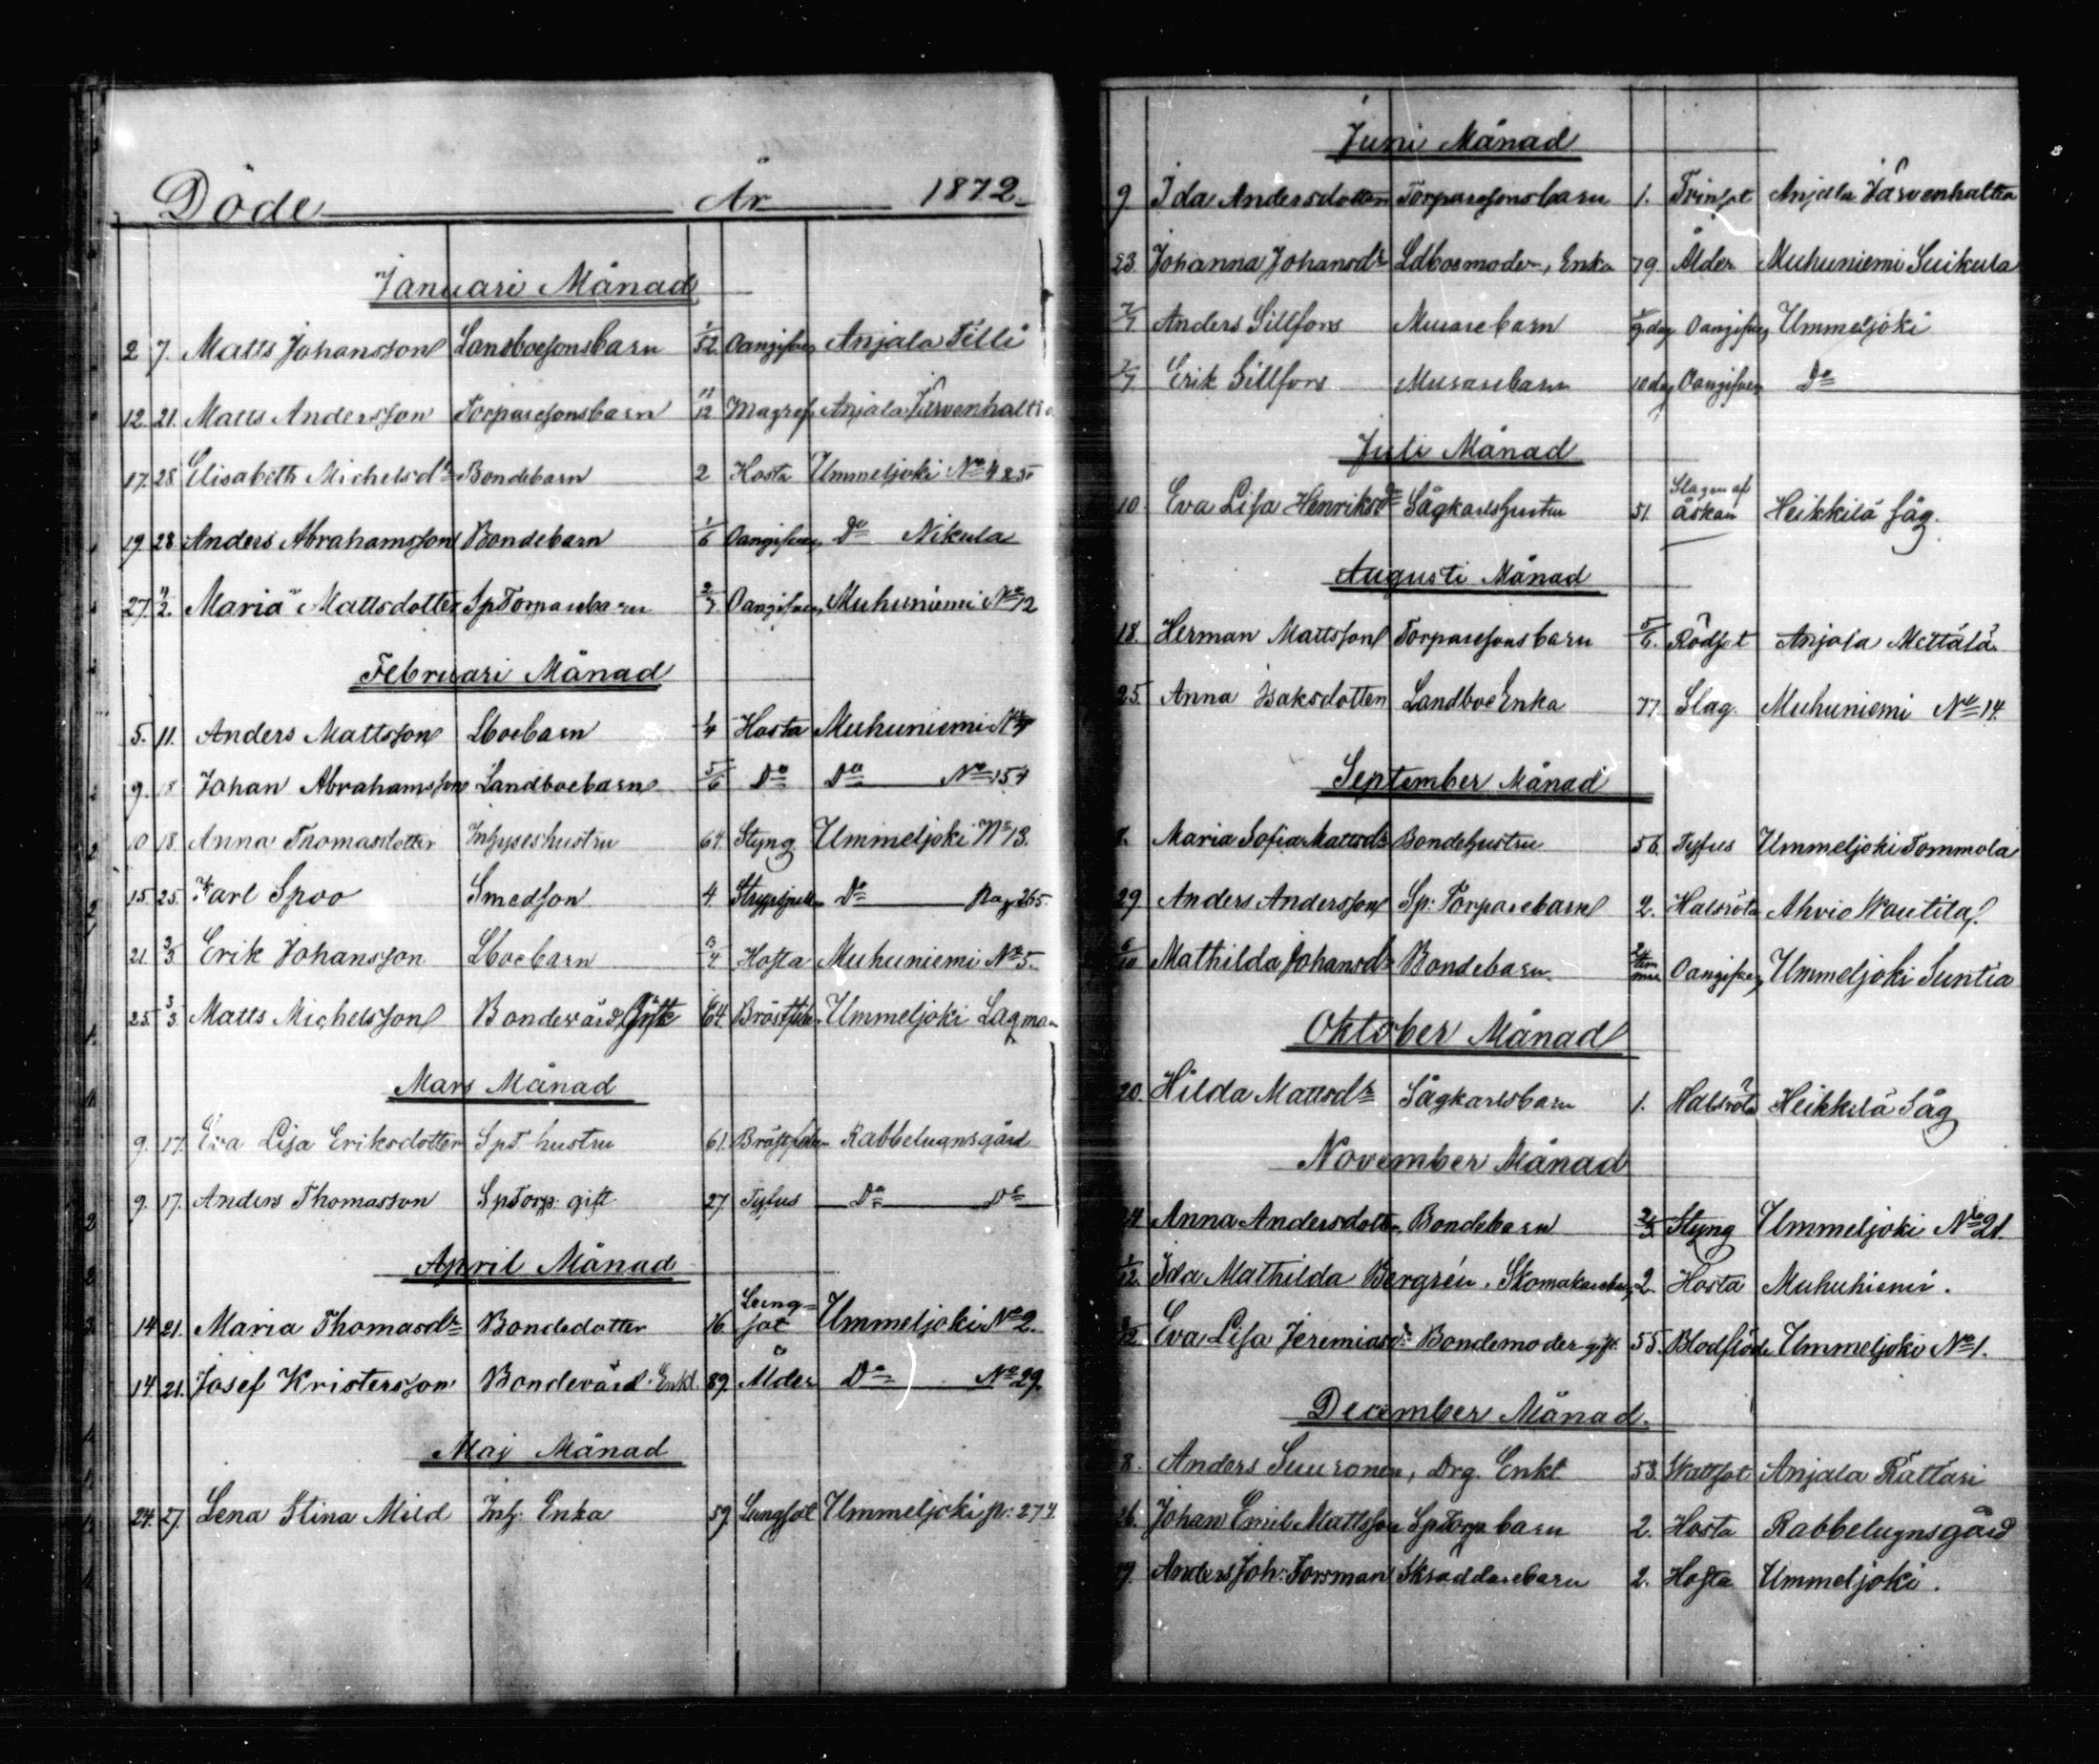 Döde År 1872.
Januari Månad
2 7. Matts Johansson Landboesonsbarn 1/52 Oangifven Anjala Tilli
12. 21. Matts Andersson Torparesonsbarn 11/12 Magref Anjala Järvenhaltia
17. 28. Elisabeth Michelsdr Bondebarn 2 Hosta Ummeljoki No 4 & 5
19 28 Anders Abrahamsson Bondebarn 1/6 Oangifven Do Nikula
27. 4/2. Maria Mattsdotter SpTorparebarn 2/7 Oangifven Muhuniemi No 12
Februari Månad
5. 11. Anders Mattsson Lboebarn 1/4 Hosta Muhuniemi No
9. 18 Johan Abrahamsson Landboebarn 5/6 Do Do No 15
10 18. Anna Thomasdotter Inhyseshustru 64. Styng Ummeljoki No 13.
15. 25. Karl Spoo Smedson 4. Strypsjuk Do Pag 265.
21. 3/3 Erik Johansson Lboebarn 3/4 Hosta Muhuniemi No 5.
25. 3/3 Matts Michelsson Bondevärd Gift 64. Bröstfeber Ummeljoki Lagman
Mars Månad
9. 17. Eva Lisa Eriksdotter SpT. hustru 61. Bröstfeber Rabbelugnsgård
9. 17. Anders Thomasson SpTorp. gift 27 Tyfus Do Do
April Månad
14 21. Maria Thomasdr Bondedotter 16. Lung=
sot Ummeljoki No 2.
14. 21. Josef Kristersson Bondevärd. Enkl. 89. Ålder Do No 29.
Maj Månad
24. 27. Lena Stina Mild Inh. Enka 59. Lungsot Ummeljoki p: 274
Juni Månad
9 Ida Andersdotter Torparesonsbarn 1. Trinsot Anjala Järvenhaltia
23. Johanna Johansdr Ldboemoder, Enka 79. Ålder Muhuniemi Suikula
2/7 Anders Sillfors Murarebarn 9 dag Oangifven Ummeljoki
3/7 Erik Sillfors Murarebarn 10 dag Oangifven Do
Juli Månad
10. Eva Lisa Henriksdr Sågkarlshustru 51. Slagen af
åskan Heikkilä såg.
Augusti Månad
18. Herman Mattsson Torparesonsbarn 5/6. Rödsot Anjala Mettälä
25. Anna Isaksdotter Landboe Enka 77 Slag. Muhuniemi No 14.
September Månad
8. Maria Sofia Mattsdr Bondehustru 56. Tyfus Ummeljoki Tommola
29 Anders Andersson Sp. Torparebarn 2. Halsröta Ahvio Wautila
6/10 Mathilda Johansdr Bondebarn Oangifven Ummeljoki Suntia
Oktober Månad
20. Hilda Mattsdr Sågkarlsbarn 1. Halsröta Heikkilä Såg
November Månad
24 Anna Andersdotter Bondebarn 2/3 Styng Ummeljoki No 21.
1/12. Ida Mathilda Bergrén. Skomakarebarn 2. Hosta Muhuniemi.
Eva Lisa Jeremiasdr Bondemoder gift. 55. Blodflöde Ummeljoki No 1.
December Månad.
8. Anders Suuronen, Drg. Enkl 53. Wattsot Anjala Rättäri
26. Johan Emil Mattsson SpTorp barn 2. Hosta Rabbelugnsgård
Anders Joh: Forsman Skräddarebarn 2. Hosta Ummeljoki.